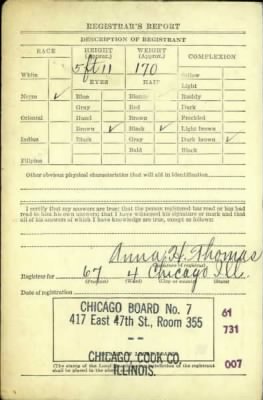 REGISTRAR'S REPORT
DESCRIPTION OF REGISTRANT
RACE HEIGHT (Approx.) WEIGHT (Approx.) COMPLEXION
5 ft 11 170
White Sallow
EYES HAIR Light
Negro ✓ Blue Blonde Ruddy
Gray Red Dark
Oriental Hazel Brown Freckled
Brown ✓ Black ✓ Light brown
Indian Black Gray Dark brown ✓
Bald Black
Filipino
Other obvious physical characteristics that will aid in identification
I certify that my answers are true; that the person registered has read or has had
read to him his own answers; that I have witnessed his signature or mark and that
all of his answers of which I have knowledge are true, except as follows:
Anna H. Thomas
(Signature of registrar)
Registrar for 67 4 Chicago Ill.
(Precinct) (Ward) (City or county) (State)
Date of registration
CHICAGO BOARD No. 7 61
417 East 47th St., Room 355 731
--
CHICAGO, COOK CO. 007
ILLINOIS.
(The stamp of the Local Board having jurisdiction of the registrant
shall be placed in the above space.)